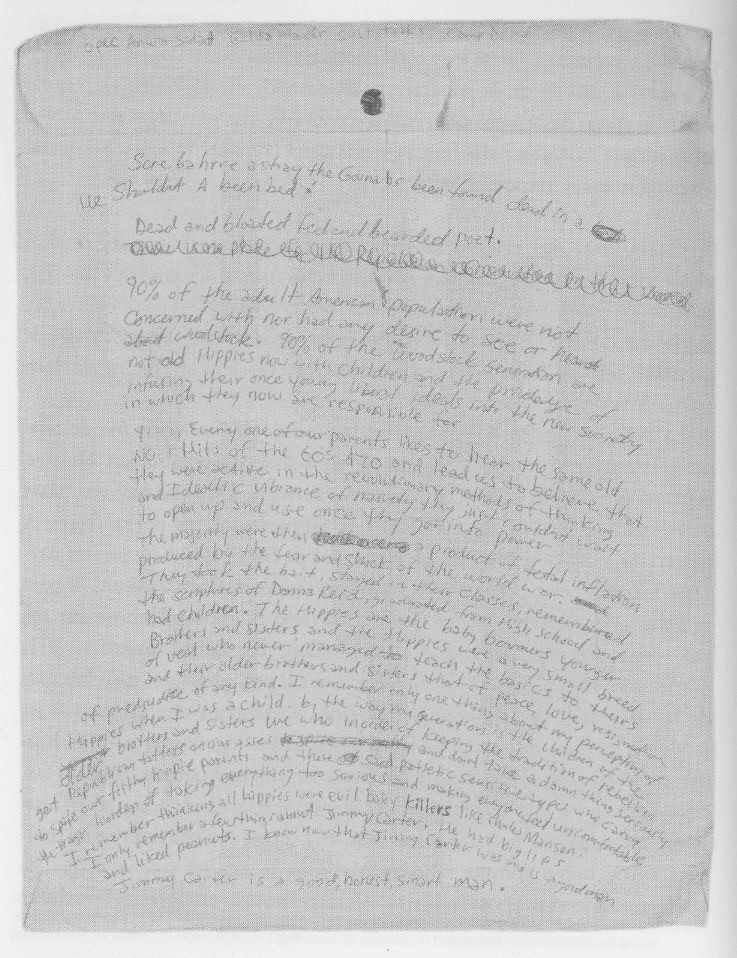 opec Anwar Sadat Golda Maeir Salt talks, Camp David
Sore bahrre astray the Gouna hs been found dead in a
He Shouldnt A been bed!
Dead and bloated fed and bearded poet.
90% of the adult American population were not
Concerned with nor had any desire to see or hear
about woodstock. 90% of the woodstock Generation are
not old Hippies now with children and the priveledge of
infusing their once young liberal ideals into the new Society
in which they now are responsible for
Every one of our parents likes to hear the same old
NO. 1 Hits of the 60s & 70 and lead us to believe that
they were active in the revolutionary methods of thinking
and Idealic vibrance of naivety they just couldnt wait
to open up and use once they got into power
the majority were then a product of fetal inflation
produced by the fear and shock of the world war.
They took the bait, stayed in their classes, remembered
the scriptures of Donna Reed, graduated from High School and
had children. The Hippies are the baby boomers younger
Brothers and Sisters and the Hippies were a very small breed
of veal who never managed to teach the basics to theirs
and their older brothers and sisters that of peace, love,
of predjudice of any kind. I remember only one thing about my perception of
Hippies when I was a child. by the way my generation is the children of the
older brothers and sisters we who inorder of keeping the tradition of rebellion
get tattoos on our asses and dont take a damn thing seriously
to spite our filthy hippie parents. and those sad pathetic sensitive types who carry
the tragic burden of taking everything too serious and making everyone feel uncomfortable
I remember thinking all hippies were evil baby killers like Charles Manson.
I only remember a few things about Jimmy Carter. He had big lips
and liked peanuts. I know now that Jimmy Carter was and is a good man
Jimmy Carter is a good, honest, smart man.